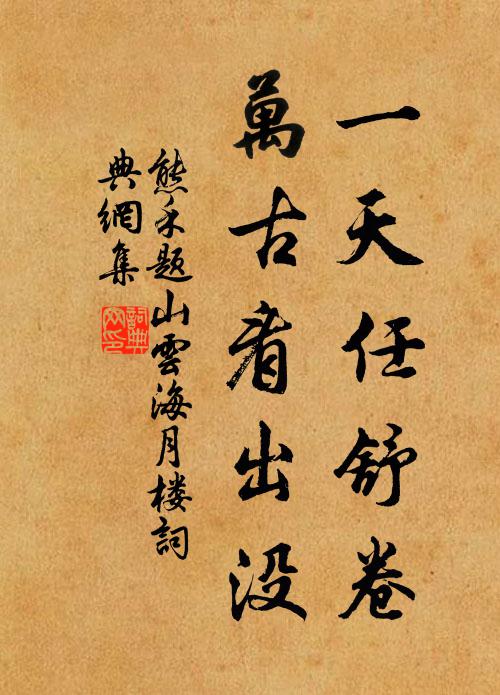 一天任舒卷
萬古看出没
熊禾題山雲海月楼詞
典網集
詞典網印